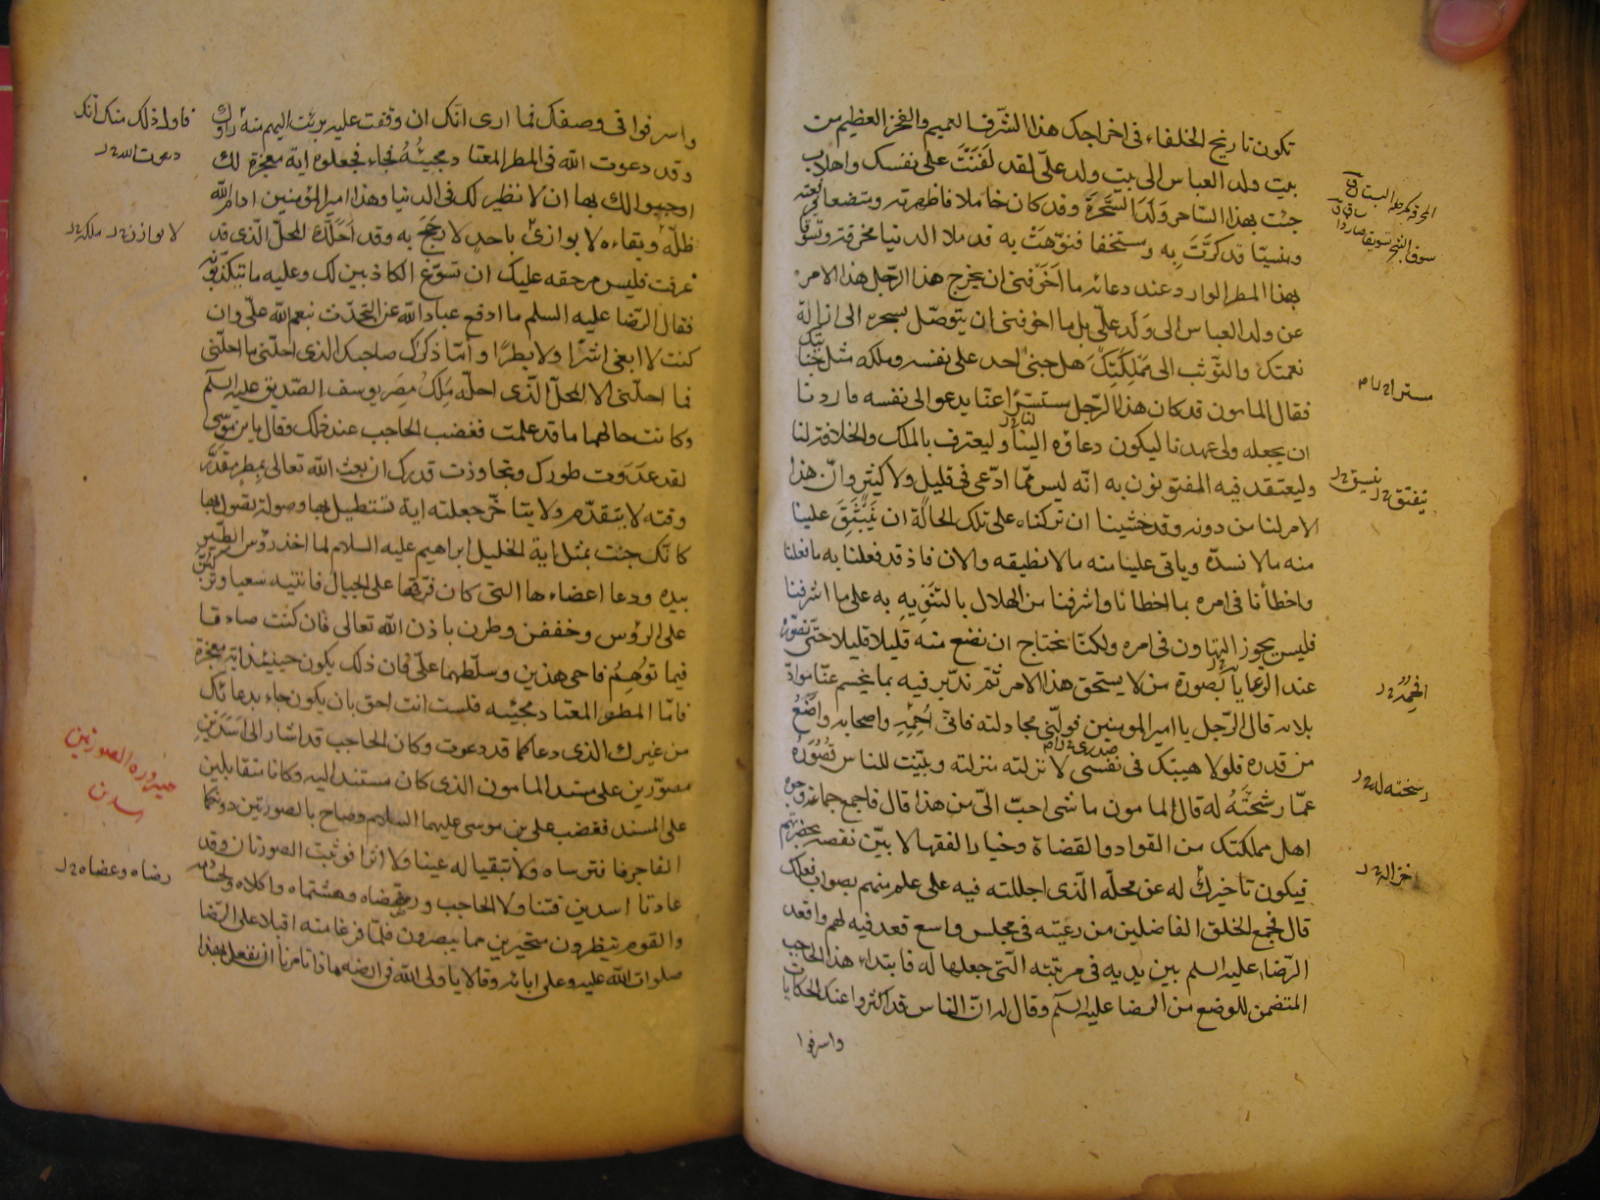 تكون تاريخ الخلفاء فى اخراجك هذا الشرف العميم والفخر العظيم من
بيت ولد العباس الى بيت ولد على لقد اعنت على نفسك واهلك
جئت بهذا الساحر ولد السحرة وقد كان خاملا فاظهرته ومتضعا فرفعته
ومنسيا قد كرت به ومستخفا فنوهت به قد ملا الدنيا مخرقة وتشوقا
بهذا المطر الوارد عند دعائه ما اخوفنى ان يخرج هذا الرجل هذا الامر
عن ولد العباس الى ولد على بل ما اخوفنى ان يتوصل بسحره الى ازالة
نعمتك والتوثب الى مملكتك هل جنى احد على نفسه وملكه مثل جنايتك
فقال المامون قد كان هذا الرجل مستترا عنا يدعو الى نفسه فاردنا
ان يجعله ولى عهدنا ليكون دعاؤه الينا وليعترف بالملك والخلافة لنا
وليعتقد فيه المفتونون به انه ليس مما ادعى فى قليل ولا كثير وان هذا
الامر لنا من دونه وقد خشينا ان تركناه على تلك الحالة ان ينبثق علينا
منه مالا نسده وياتى علينا منه مالا نطيقه والان فاذ قد فعلنا به ما فعلنا
واخطأنا فى امره بما اخطانا واشرفنا من الهلاك بالتنويه به على ما اشرفنا
فليس يجوز التهاون فى امره ولكنا نحتاج ان نضع منه قليلا قليلا حتى نصوره
عند الرعايا بصورة من لا يستحق هذا الامر ثم ندبر فيه بما يحسم عنا مواد
بلائه قال الرجل يا امير المومنين فولنى مجادلته فانى افحمه واصحابه واضع
من قدره فلولا هيبتك فى نفسى لا نزلته منزلته وبينت للناس قصوره
عما رشحته له قال المامون ما شى احب الى من هذا قال فاجمع جماعة وجوه
اهل مملكتك من القواد والقضاة وخيار الفقها لا بين نقصه بحضرتهم
فيكون تاخيرك له عن محله الذى احللته فيه على علم منهم بصواب فعلك
قال فجمع الخلق الفاضلين من رعيته فى مجلس واسع قعد فيه لهم واقعد
الرضا عليه السلم بين يديه فى مرتبته التى جعلها له فابتداء هذا الحاجب
المتضمن للوضع من الرضا عليه السلم وقال له ان الناس قد اكثروا عنك الحكايات
واسرفوا
واسرفوا فى وصفك فما ارى انك ان وقفت عليه برئت اليهم منه فاول
وقد دعوت الله فى المطر المعتاد مجيئه فجاء فجعلوه اية معجزة لك
اوجبوا لك بها ان لا نظير لك فى الدنيا وهذا امير المؤمنين ادام الله
ظله وبقاءه لا يوازى باحد الا رجح به وقد احلك المحل الذى قد
عرفت فليس من حقه عليك ان تسوغ الكاذبين لك وعليه ما يتكذبونه
فقال الرضا عليه السلم ما ادفع عباد الله عن التحدث بنعم الله على وان
كنت لا ابغى اشرا ولا بطرا واما ذكرك صاحبك الذى احلنى ما احلنى
فما احلنى الا المحل الذى احله ملك مصر يوسف الصديق عليه السلم
وكانت حالهما ما قد علمت فغضب الحاجب عند ذلك فقال يابن موسى
لقد عدوت طورك وتجاوزت قدرك ان بعث الله تعالى بمطر مقدر
وقته لا يتقدم ولا يتاخر جعلته اية تستطيل بها وصولة تصول بها
كانك جئت بمثل اية الخليل ابراهيم عليه السلام لما اخذ رؤس الطير
بيده ودعا اعضاءها التى كان فرقها على الجبال فاتينه سعيا وتركبن
على الرؤس وخفقن وطرن باذن الله تعالى فان كنت صادقا
فيما توهم فاحى هذين وسلطهما على فان ذلك يكون حينئذ اية معجزة
فاما المطر المعتاد مجيئه فلست انت احق بان يكون جاء بدعائك
من غيرك الذى دعا كما دعوت وكان الحاجب قد اشار الى اسدين
مصورين على مسند المامون الذى كان مستندا اليه وكانا متقابلين
على المسند فغضب على بن موسى عليهما السلام وصاح بالصورتين دونكما
الفاجر فافترساه ولا تبقيا له عينا ولا اثرا فوثبت الصورتان وقد
عادتا اسدين فتناولا الحاجب ورضضاه وهشماه واكلاه ولحسا دمه
والقوم ينظرون متحيرين مما يبصرون فلما فرغا منه اقبلا على الرضا
صلوات الله عليه وعلى ابائه وقالا يا ولى الله فى ارضه ماذا تامرنا ان نفعل بهذا
مستترا
ينبثق
افحمه
رشحته له
فاول ذلك منك انك
دعوت الله
لا يوازن
صيروره الصورتين
اسدين
رضاه وعضاه